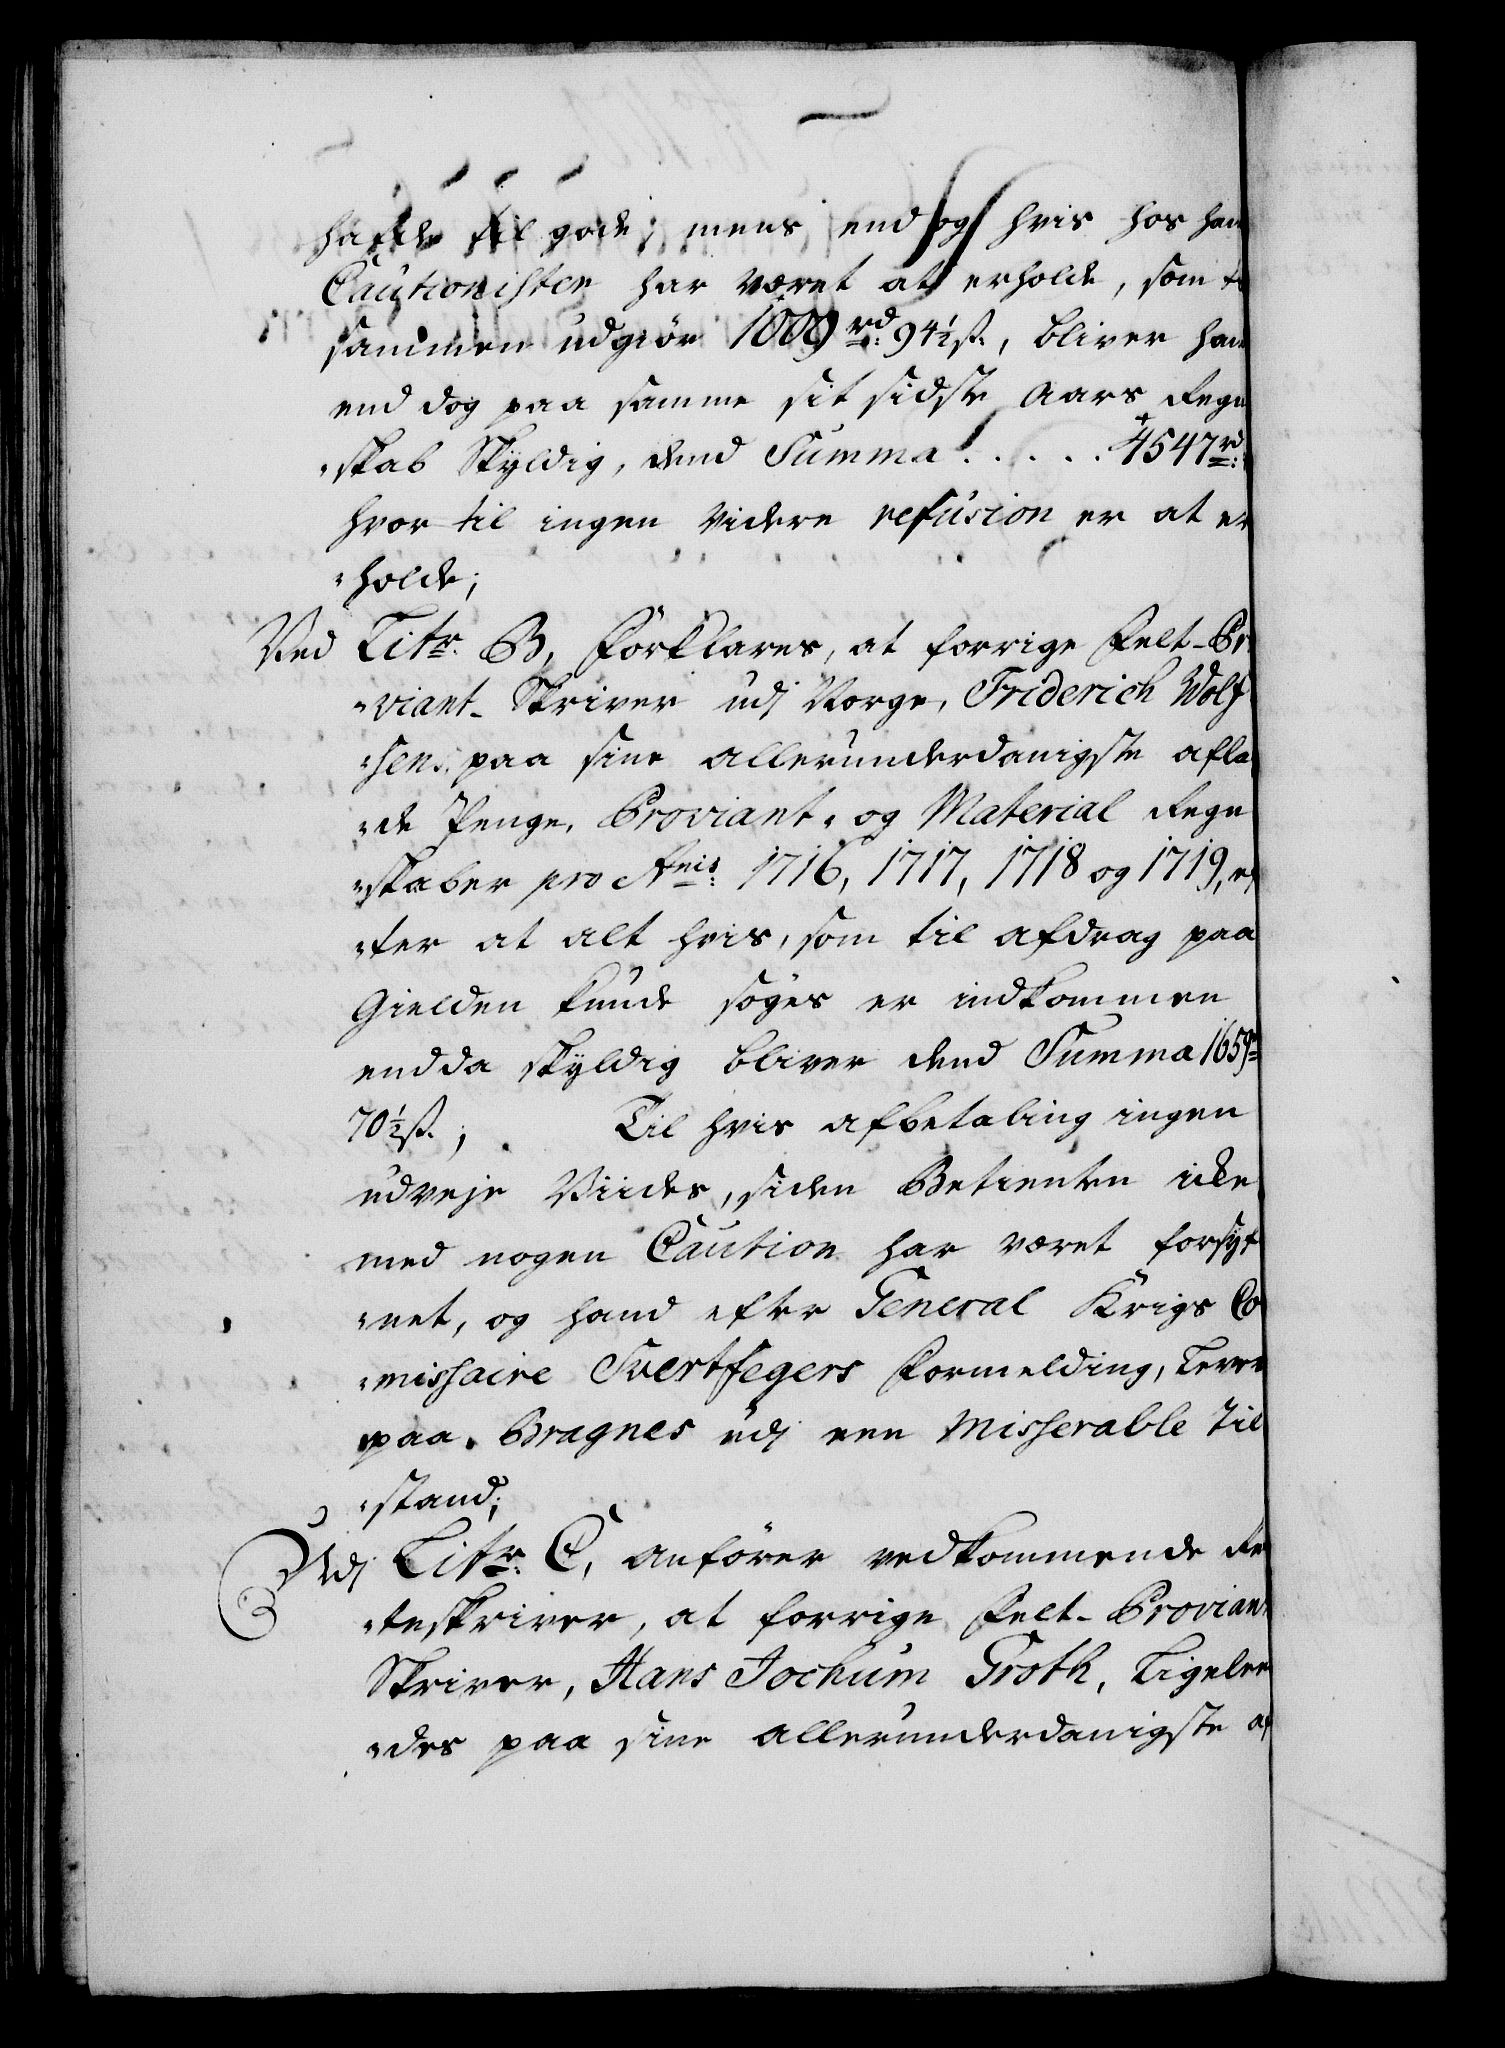 hafde til gode; mens end og hvis hos han
Cautionisten har været at erholde, som t
sammen udgiør 1009 rd: 94½ ß., bliver han
end dog paa samme sit sidste Aars Regn
"skab Skyldig, dend Summa . . . . . 4547 rd:
hvor til ingen videre refusion er at er
"holde;
Ved Litr. B, forklares, at forrige Felt-Pr
"viant-Skriver udj Norge, Friderich Wolf
"sen: paa sine allerunderdanigste afla
"de Penge, Proviant- og Material Regn
"skaber pro Anis: 1716, 1717, 1718 og 1719, ef
"ter at alt hvis, som til afdrag paa
Gielden kunde søges er indkommen
endda skyldig bliver dend Summa 1659 rd
70½ ß.; Til hvis afbetaling ingen
udveje Viides, siden Betienten icke
med nogen Caution har været forsyf
"net, og hand efter General Krigs Co
"missaire Svertfegers formelding, Leve
paa Bragnes udj een Misserable Til
"stand;
Udj Litr: C, anfører vedkommende Re
"teskriver, at forrige Felt-Provian
Skriver, Hans Jochum Groth, Ligelee
"des paa sine allerunderdanigste af